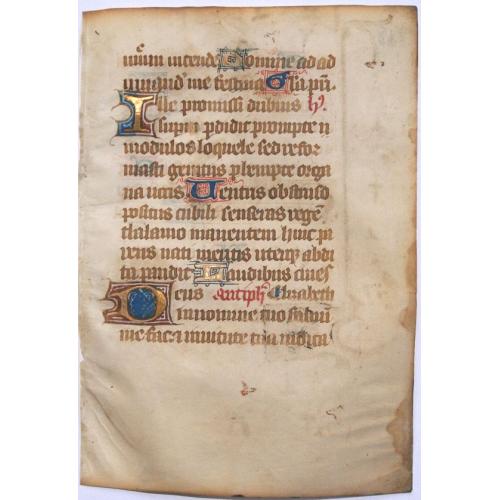 intende Domine ad ad
iuuand me festina Gl'a pri.
Ille promissi dubius h'.
supni pdidit prompte
modulos loquele sed refor
masti genitus pempte orga
na uocis Uentris obstruso
positus cubili senseras regē
thalamo manentem hinc pa
rens nati meritis uterq; abdi
ta pandit Laudibus ciues
Deus Antiph' Elizabeth
in nomine tuo saluū
me fac: & in uirtute tua iudica